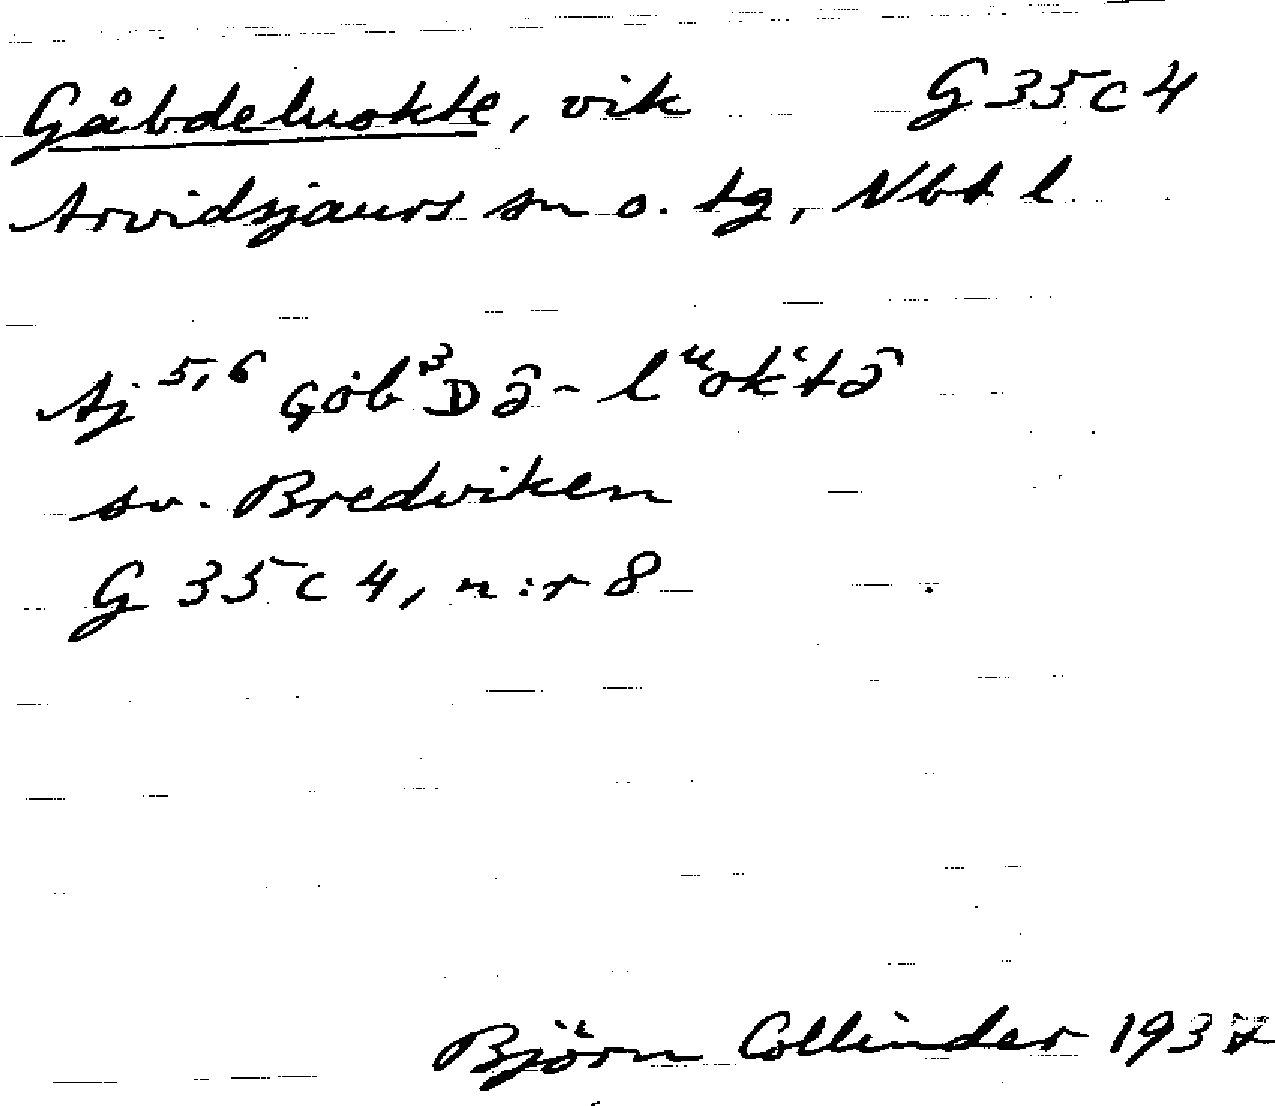 Gåbdeluokte, vik G35c4
Arvidsjaurs sn o. tg, Nbt l.
Aj 5,6 Gȯb³Də̑-lᵘok‛tə̑
sv. Bredviken
G 35 c 4, n:r 8
Björn Collinder 1937